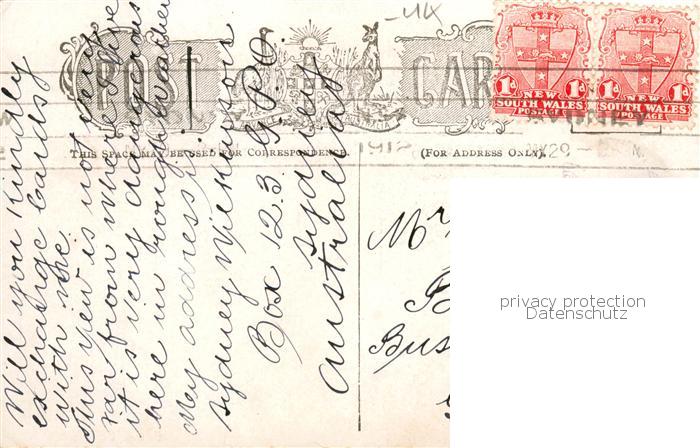 POST CARD
THIS SPACE MAY BE USED FOR CORRESPONDENCE.
(FOR ADDRESS ONLY).
1d 1d
NEW SOUTH WALES POSTAGE
1d 1d
NEW SOUTH WALES POSTAGE
Will you kindly
exchange cards
with me.
This view is not very
far from where I live
it is very dangerous
here in rough weather
My address is
Sydney Wilkinson
Box 123 G.P.O.
Sydney
Australia
Mr
Bus
privacy protection
Datenschutz